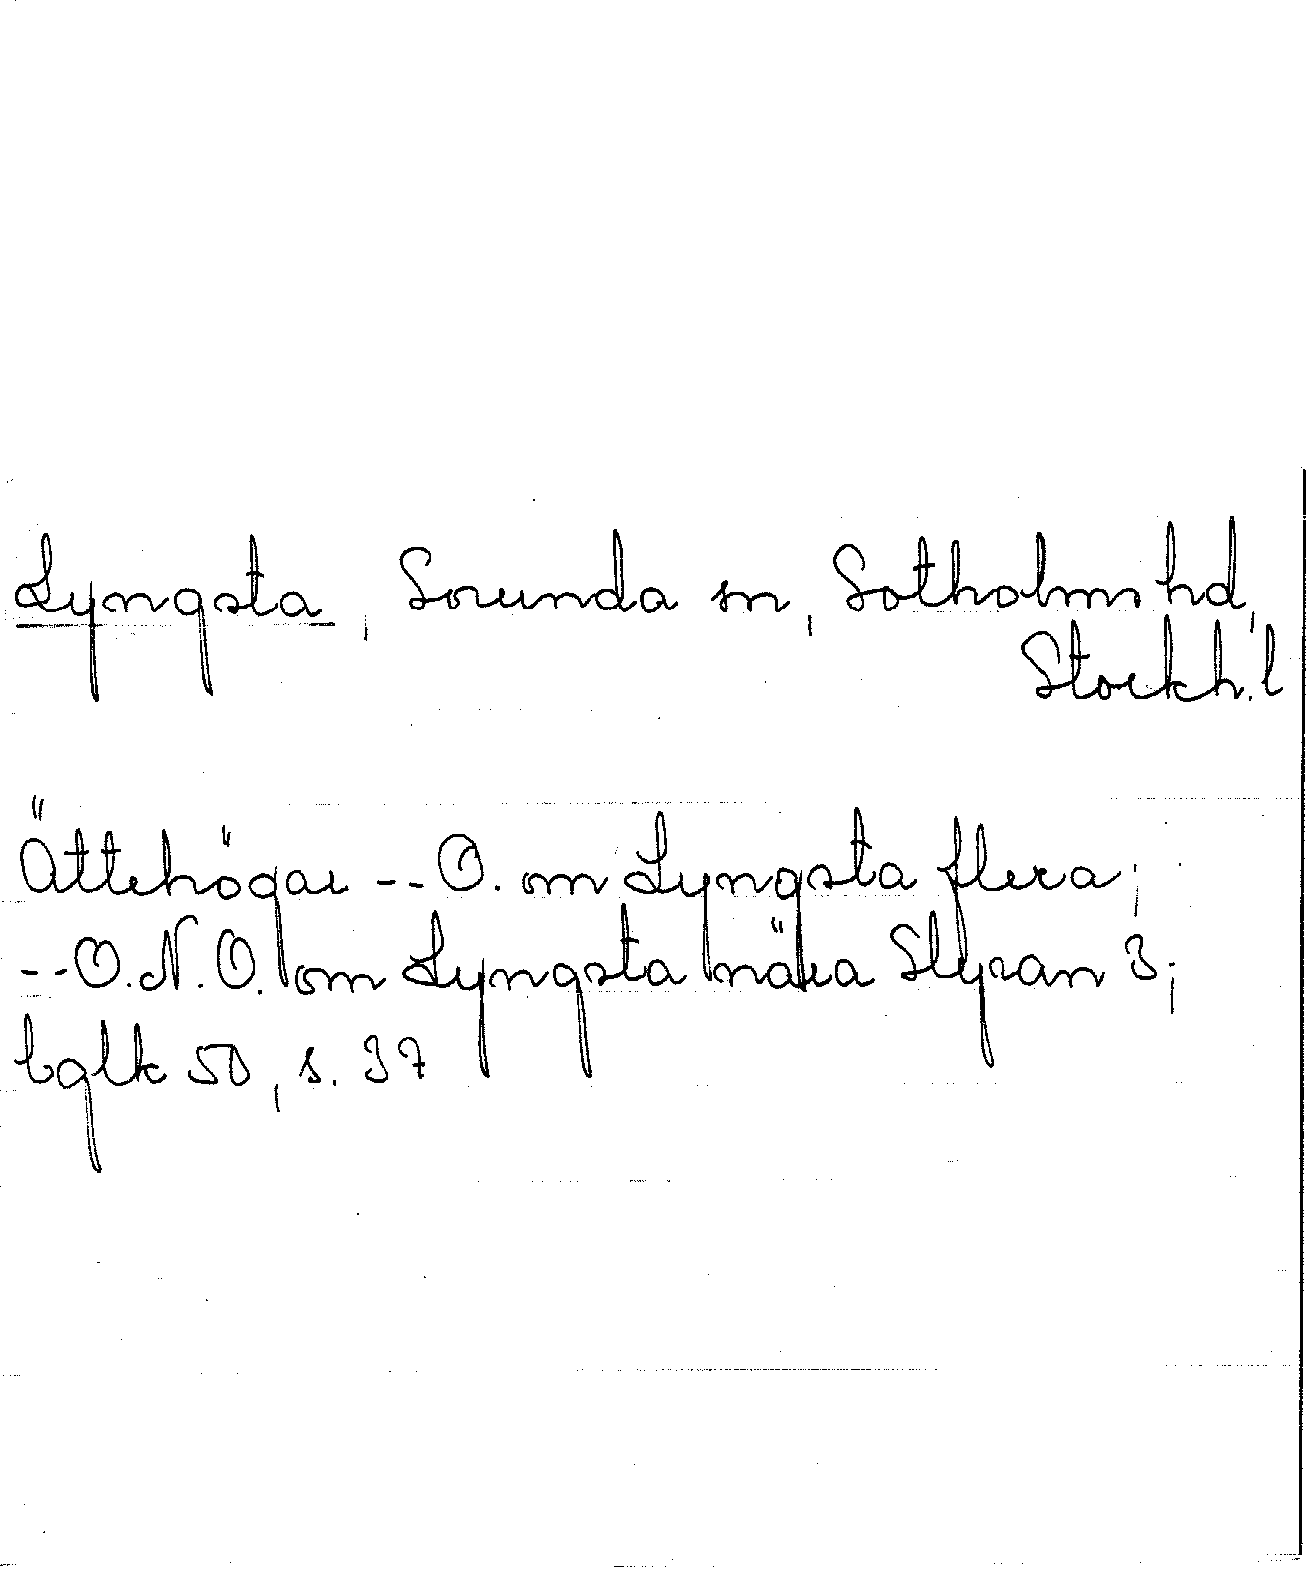 Lyngsta, Sorunda sn, Sotholms hd,
Stockh. l
Ättehögar -- O. om Lyngsta flera;
-- O.N.O. om Lyngsta nära Styran 3;
bglk 50, s. 37